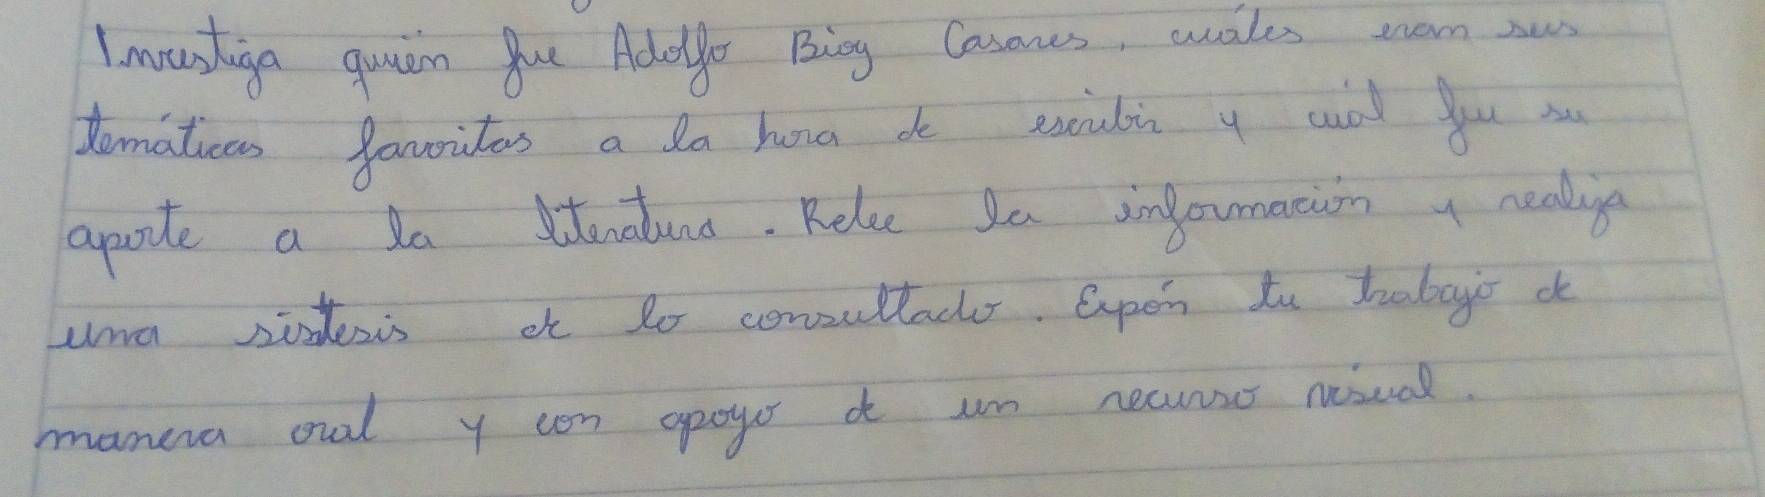 Investiga quién fue Adolfo Bioy Casares, cuáles eran sus
temáticas favoritas a la hora de escribir y cuál fue su
aporte a la literatura. Relee la información y realiza
una síntesis de lo consultado. Expón tu trabajo de
manera oral y con apoyo de un recurso visual.